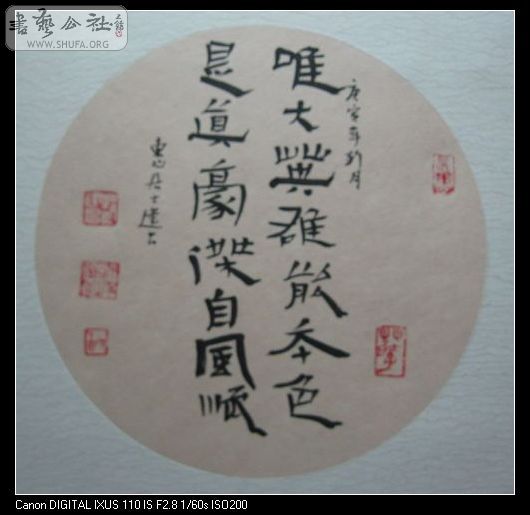 書藝公社
WWW.SHUFA.ORG
唯大英雄能本色
是真豪傑自風流
庚寅年
Canon DIGITAL IXUS 110 IS F2.8 1/60s ISO200